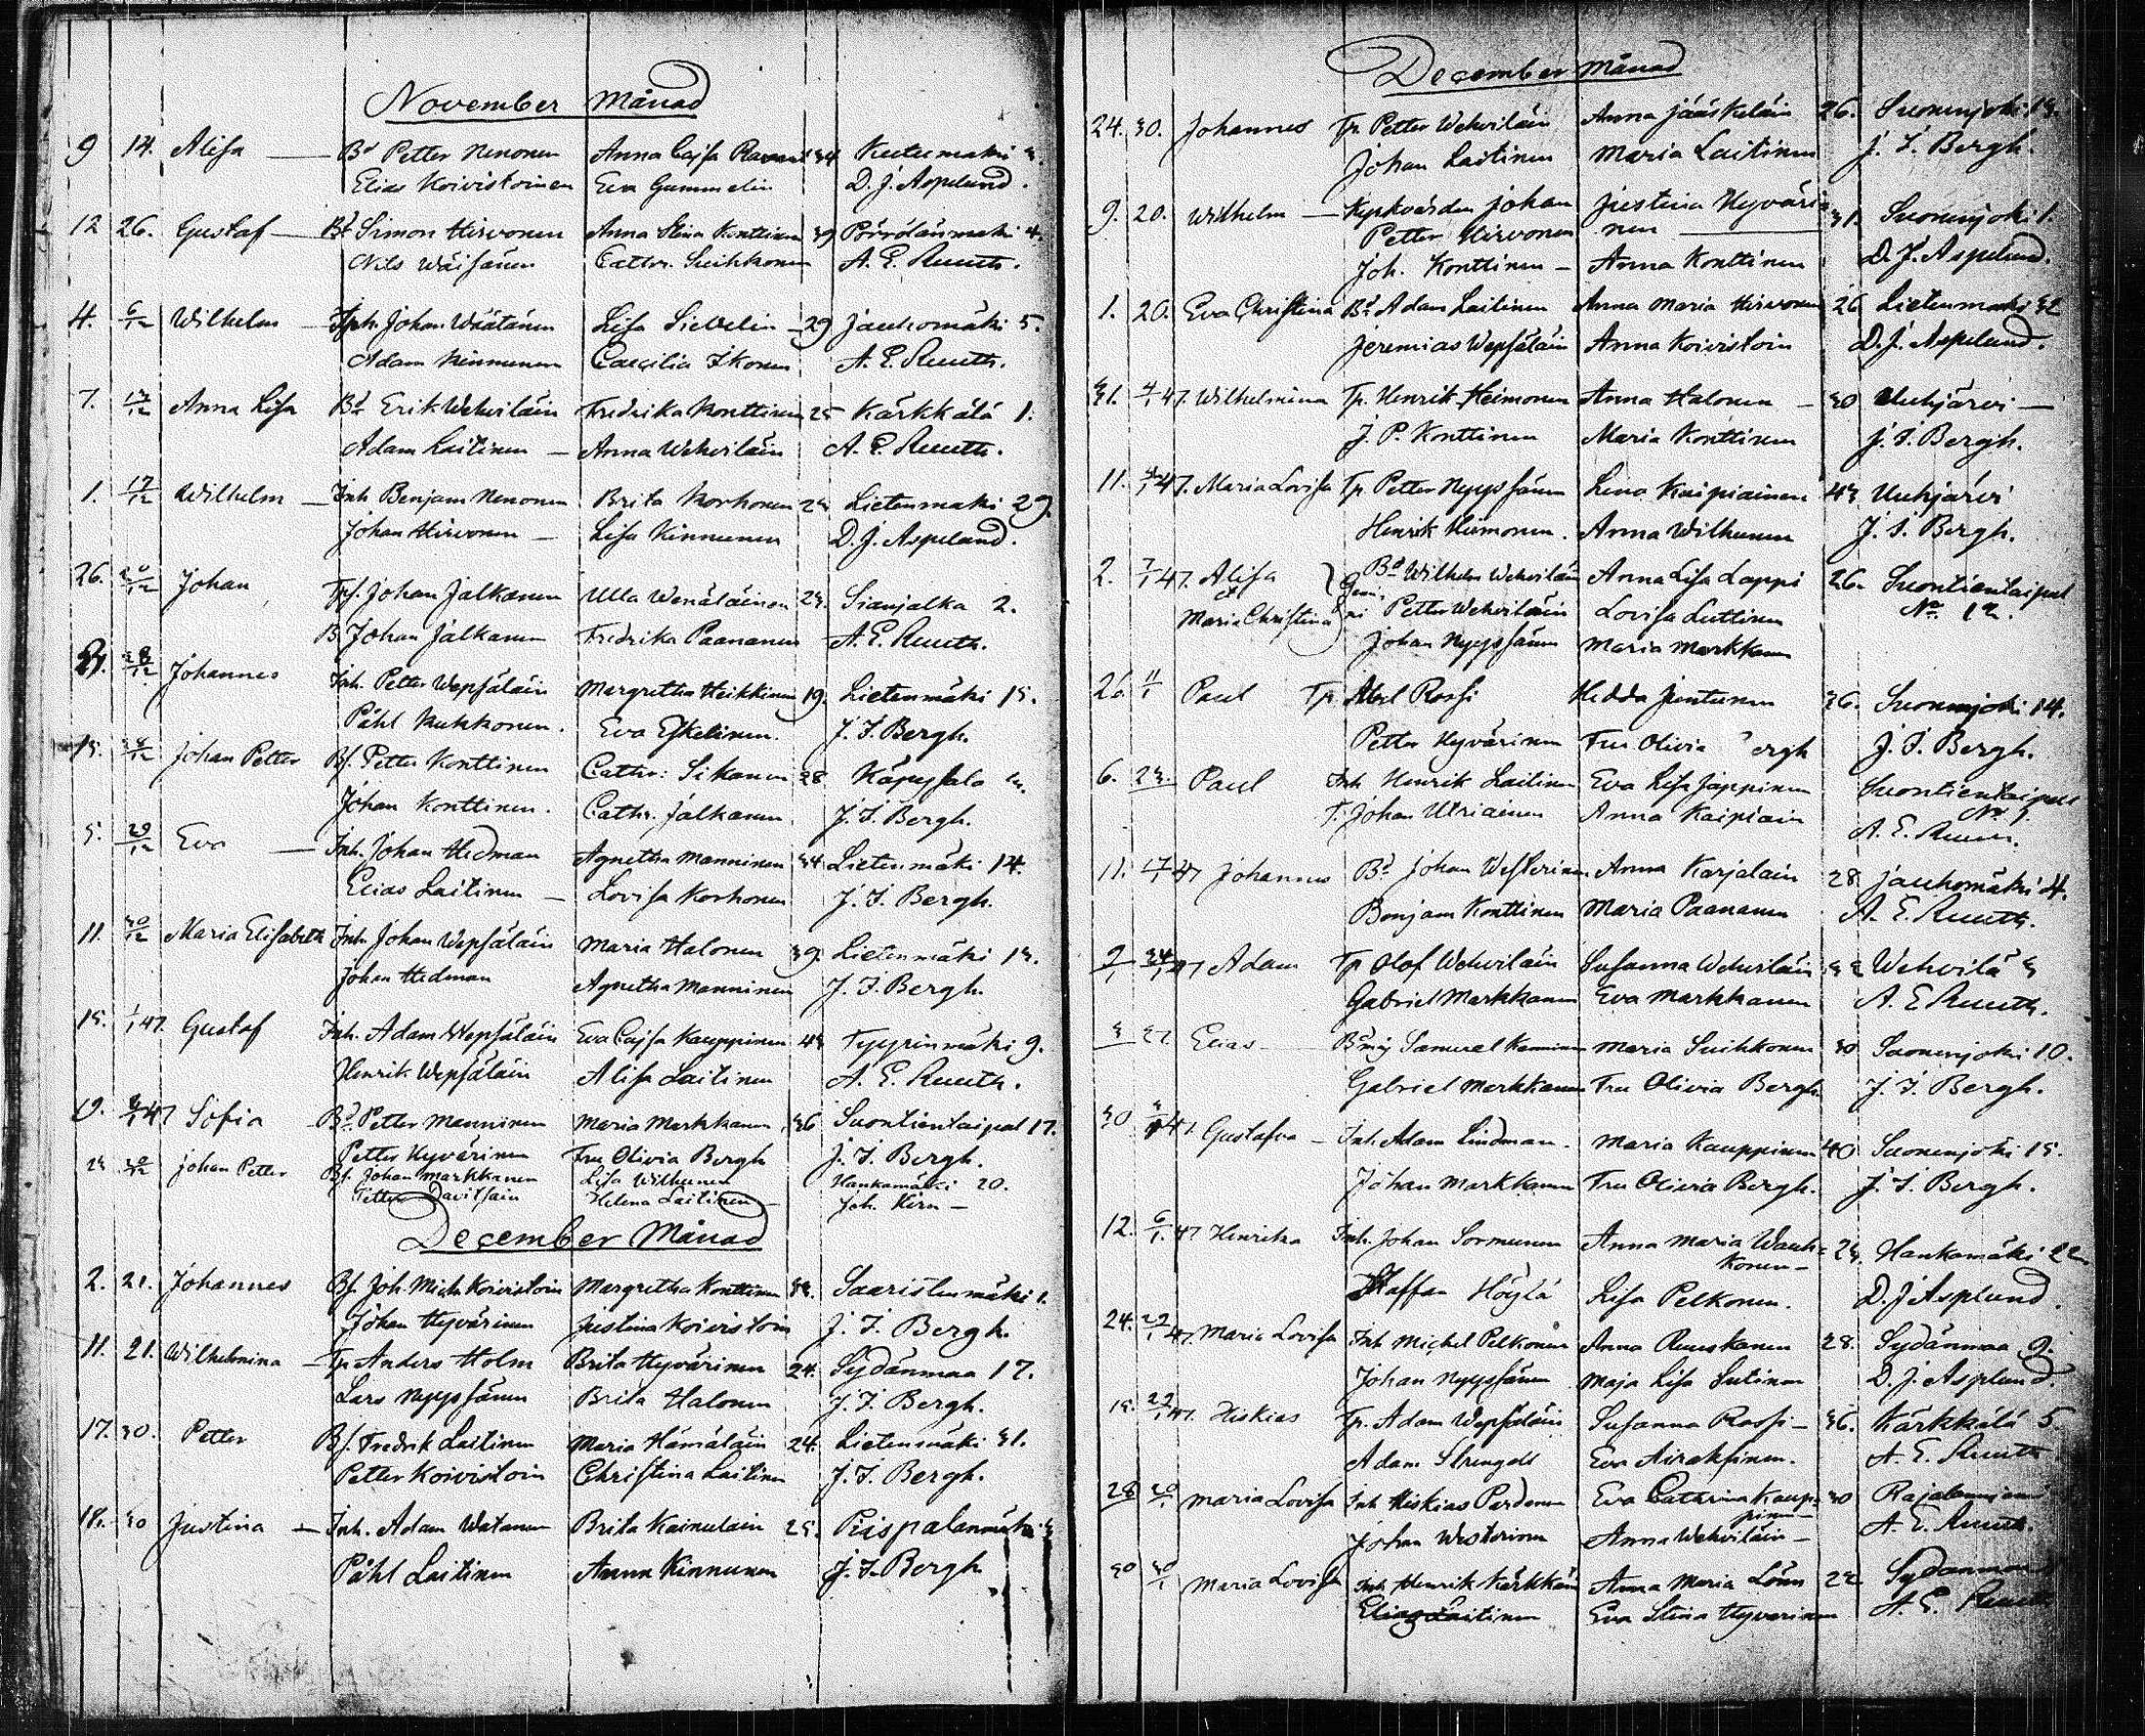 November Månad
9 14. Alisa — Bd Petter Nenonen Anna Cajsa 34 Kutumäki 3.
Elias Koivistoinen Eva Gummelin D. J. Aspelund.
12 26. Gustaf — Bd Simon Hirvonen Anna Stina Konttinen 39 Pörrölänmäki 4.
Nils Wäisänen Cathr. Suihkonen A. E. Ruuth.
4. 6/12 Wilhelm — Johan Wäätänen Lisa Sievelin — 29 Jauhomäki 5.
Adam Kinnunen Caecilia Ikonen A. E. Ruuth.
7. 13/12 Anna Lisa Bd Erik Wehviläin Fredrika Konttinen 25 Kärkkälä 1.
Adam Laitinen — Anna Wehviläin A. E. Ruuth.
1. 17/12 Wilhelm — Inh Benjam Nenonen Brita Korhonen 23 Lietenmäki 29.
Johan Hirvonen — Lisa Kinnunen D. J. Aspelund.
26. 20/12 Johan Johan Jalkanen Ulla Wenäläinen 23. Sianjalka 2.
B. Johan Jalkanen Fredrika Paananen A. E. Ruuth.
28/12 Johannes Inh. Petter Wepsäläin Margretha Heikkinen 19. Lietenmäki 15.
Påhl Kukkonen. Eva Eskelinen. J. F. Bergh.
15. 28/12 Johan Petter Bf. Petter Konttinen Cathr: Sikanen 28 Käpysalo
Johan Konttinen. Cathr. Jalkanen. J. F. Bergh.
5. 29/12 Eva — Inh. Johan Hedman Agnetha Manninen 34 Lietenmäki 14.
Elias Laitinen — Lovisa Korhonen J. F. Bergh.
11. 30/12 Maria Elisabeth Inh. Johan Wepsäläin Maria Halonen 39. Lietenmäki 13.
Johan Hedman Agnetha Manninen J. F. Bergh.
15. 1/1 47. Gustaf Inh. Adam Wepsäläin Eva Cajsa Kauppinen 43 Tyyrinmäki 9.
Henrik Wepsäläin Alisa Laitinen A. E. Ruuth.
19. 3/1 47 Sofia Bd. Petter Manninen Maria Markkanen 36 Suontientaipal 17.
Petter Hyvärinen Fru Olivia Bergh J. F. Bergh.
23 30/12 Johan Petter Bf. Johan Markkanen Lisa Wilhunen Hankamäki 20.
Petter Davitsain Helena Laitinen — Joh. Kirn —
December Månad
2. 21. Johannes Bf. Joh. Mich. Koivistoin Margretha Konttinen 33. Saaristenmäki 1.
Johan Hyvärinen Justina Koivistoin J. F. Bergh.
11. 21. Wilhelmina — Tp Anders Holm Brita Hyvärinen 24. Sydänmaa 17.
Lars Nyyssönen Brita Halonen J. F. Bergh.
17. 30. Petter Bf. Fredrik Laitinen Maria Hämäläin 24. Lietenmäki 31.
Petter Koivistoin Christina Laitinen J. F. Bergh.
18. 30 Justina — Inh. Adam Watanen Brita Kainulain 25. Piispalanmäki 3
Påhl Laitinen Anna Kinnunen J. F. Bergh
December Månad
24. 30. Johannes Tp. Petter Wehviläin Anna Jääskeläin 26. Suonenjoki 13.
Johan Laitinen Maria Laitinen J. F. Bergh.
9. 20. Wilhelm — Kyrkvärden Johan Justina Hyväri- 31. Suonenjoki 1.
Petter Hirvonen nen —
Joh. Konttinen — Anna Konttinen D. J. Aspelund.
1. 20. Eva Christina Bd Adam Laitinen Anna Maria Hirvonen 26 Lietenmäki 32
Jeremias Wepsäläin Anna Koivistoin D. J. Aspelund.
31. 4/1 47. Wilhelmina Tp. Henrik Heimonen Anna Halonen — 30 Uuhjärvi —
J. P. Konttinen Maria Konttinen J. F. Bergh.
11. 4/1 47. Maria Lovisa Tp Petter Nyyssönen Lena Kaipiainen 43 Uuhjärvi
Henrik Heimonen. Anna Wilhunen J. F. Bergh.
2. 7/1 47. Alisa Bd Wilhelm Wehviläin Anna Lisa Lappi 26. Suontientaipal
& Maria Christina Gemini Petter Wehviläin Lovisa Luttinen No 12.
Johan Nyyssönen Maria Markkanen
26 11/1 Paul Tp Abel Rossi Hedda Juntunen 36. Suonenjoki 14.
Petter Hyvärinen Fru Olivia Bergh J. F. Bergh.
6. 23. Paul Inh Henrik Laitinen Eva Lisa Jäppinen Suontientaipal
No 1.
T. Johan Ulriainen Anna Kaipiain A. E. Ruuth.
11. 17/1 47 Johannes Bd. Johan Westerinen Anna Karjalain 28 Jauhomäki 4.
Benjam Konttinen Maria Paananen A. E. Ruuth.
2 24/1 47 Adam Tp Olof Wehviläin Susanna Wehviläin 32 Wehvilä 3
Gabriel Markkanen Eva Markkanen A. E Ruuth.
3 27 Elias — Samuel Kanninen Maria Suihkonen 30 Suonenjoki 10.
Gabriel Markkanen Fru Olivia Bergh. J. F. Bergh.
30 47 Gustafva — Inh. Adam Lindman. Maria Kauppinen 40 Suonenjoki 15.
Johan Markkanen Fru Olivia Bergh. J. F. Bergh.
12. 6/1 47 Henrika Inh. Johan Sormunen Anna Maria Wauh- 23. Hankamäki 22
konen —
Staffan Höylä Lisa Pelkonen. D. J Asplund.
24. 22/1 47 Maria Lovisa Inh Michel Pelkonen Anna Ruuskanen 28. Sydänmaa 9.
Johan Nyyssönen Maja Lisa Sutinen D. J. Asplund.
15. 22/1 47. Hiskias Tp. Adam Wepsäläin Susanna Rossi — 36. Kärkkälä 5.
Adam Strengell Eva Airaksinen. A. E. Ruuth
28 20/1 Maria Lovisa Inh Hiskias Pardonen Eva Cathrina Kaup- 30
pinen —
Johan Westerinen Anna Wehviläin — A. E. Ruuth.
30 30/1 Maria Lovisa Inh Henrik Kärkkäin Anna Maria Lönn 22 Sydänmaa
Elias Laitinen Eva Stina Hyvärinen A. E. Ruuth